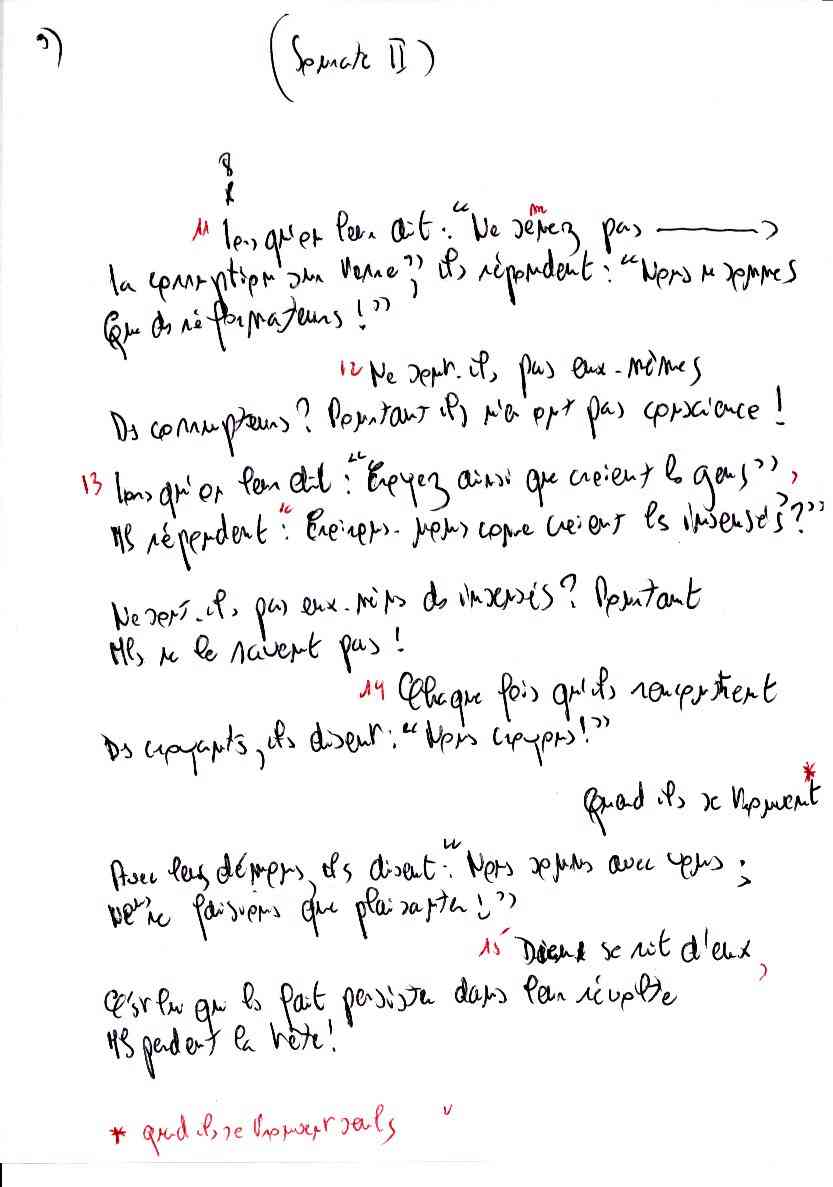 9)
(Sourate II)
8
x
11 Lorsqu'on leur dit : "Ne semez pas
la corruption sur terre", ils répondent : "Nous ne sommes
Que des réformateurs !"
12 Ne sont-ils pas eux-mêmes
Des corrupteurs ? Pourtant ils n'en ont pas conscience !
13 Lorsqu'on leur dit : "Croyez ainsi que croient les gens",
Ils répondent : "Croirons-nous comme croient les insensés ?"
Ne sont-ils pas eux-mêmes des insensés ? Pourtant
Ils ne le savent pas !
14 Chaque fois qu'ils rencontrent
Des croyants, ils disent : "Nous croyons !"
Quand ils se trouvent *
Avec leurs démons, ils disent : "Nous sommes avec vous ;
Nous ne faisions que plaisanter !"
15 Dieu se rit d'eux,
C'est lui qui les fait persister dans leur révolte
Ils perdent la tête !
* quand ils se trouvent seuls